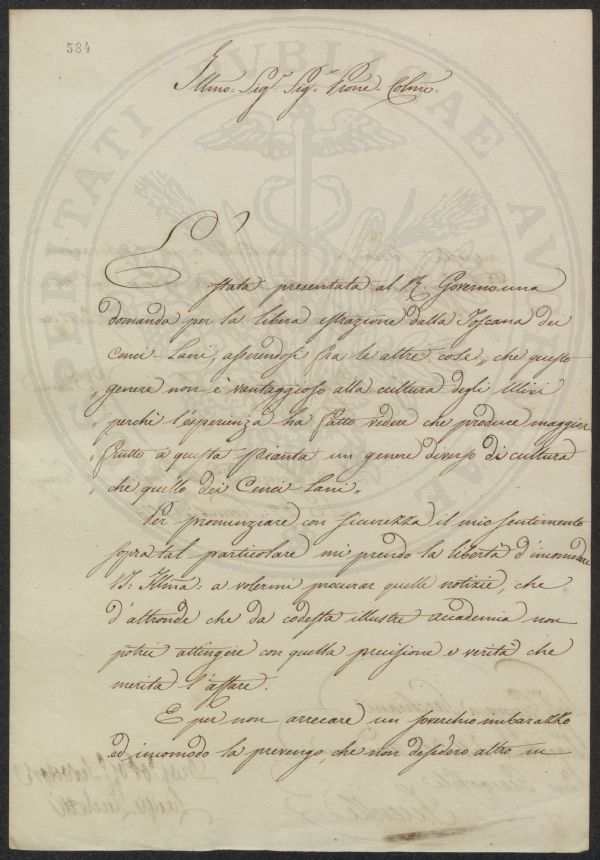 384
Illmo: Sigr. Sigr. Prone. Colmo:
È stata presentata al R. Governo una
domanda per la libera estrazione dalla Toscana dei
Cenci-Lani, asserendosi fra le altre cose „ che questo
„ genere non è vantaggioso alla cultura degli Ulivi
„ perchè l'esperienza ha fatto vedere che produce maggior
„ frutto a questa Pianta un genere diverso di cultura
„ che quello dei Cenci-Lani.
Per pronunziare con sicurezza il mio sentimento
sopra tal particolare mi prendo la libertà d'incomodare
VS: Illma: a volermi procurar quelle notizie, che
d'altronde che da codesta illustre Accademia non
potrei attingere con quella precisione e verità che
merita l'affare.
E per non arrecare un soverchio imbarazzo
ed incomodo la prevengo, che non desidero altro in
PUBLICAE